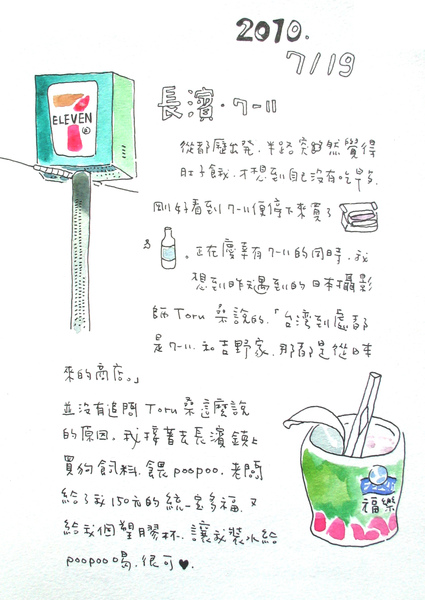 2010.
7/19
ELEVEN
長濱·7-11
從部歷出發.半路突然覺得
肚子餓.才想到自己沒有吃早
剛好看到7-11便停下來買了
。正在慶幸有7-11的同時.我
想到昨天遇到的日本攝影
師 Toru 桑說的.「台灣到處都
是7-11.和吉野家.那都是從日本
來的商店。」
並沒有追問 Toru 桑這麼說
的原因.我接著去長濱鎮上
買狗飼料.餵poopoo.老闆
給了我150元的統一多多福.又
給我個塑膠杯.讓我裝水給
poopoo喝.很可♥.
福樂